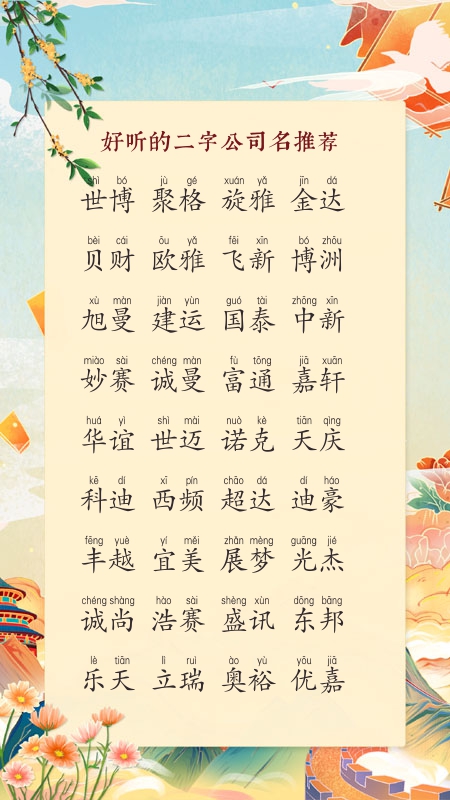 好听的二字公司名推荐
shì bó jù gé xuán yǎ jīn dá
世博 聚格 旋雅 金达
bèi cái ōu yǎ fēi xīn bó zhōu
贝财 欧雅 飞新 博洲
xù màn jiàn yùn guó tài zhōng xīn
旭曼 建运 国泰 中新
miào sài chéng màn fù tōng jiā xuān
妙赛 诚曼 富通 嘉轩
huá yì shì mài nuò kè tiān qìng
华谊 世迈 诺克 天庆
kē dí xī pín chāo dá dí háo
科迪 西频 超达 迪豪
fēng yuè yí měi zhǎn mèng guāng jié
丰越 宜美 展梦 光杰
chéng shàng hào sài shèng xùn dōng bāng
诚尚 浩赛 盛讯 东邦
lè tiān lì ruì ào yù yōu jiā
乐天 立瑞 奥裕 优嘉